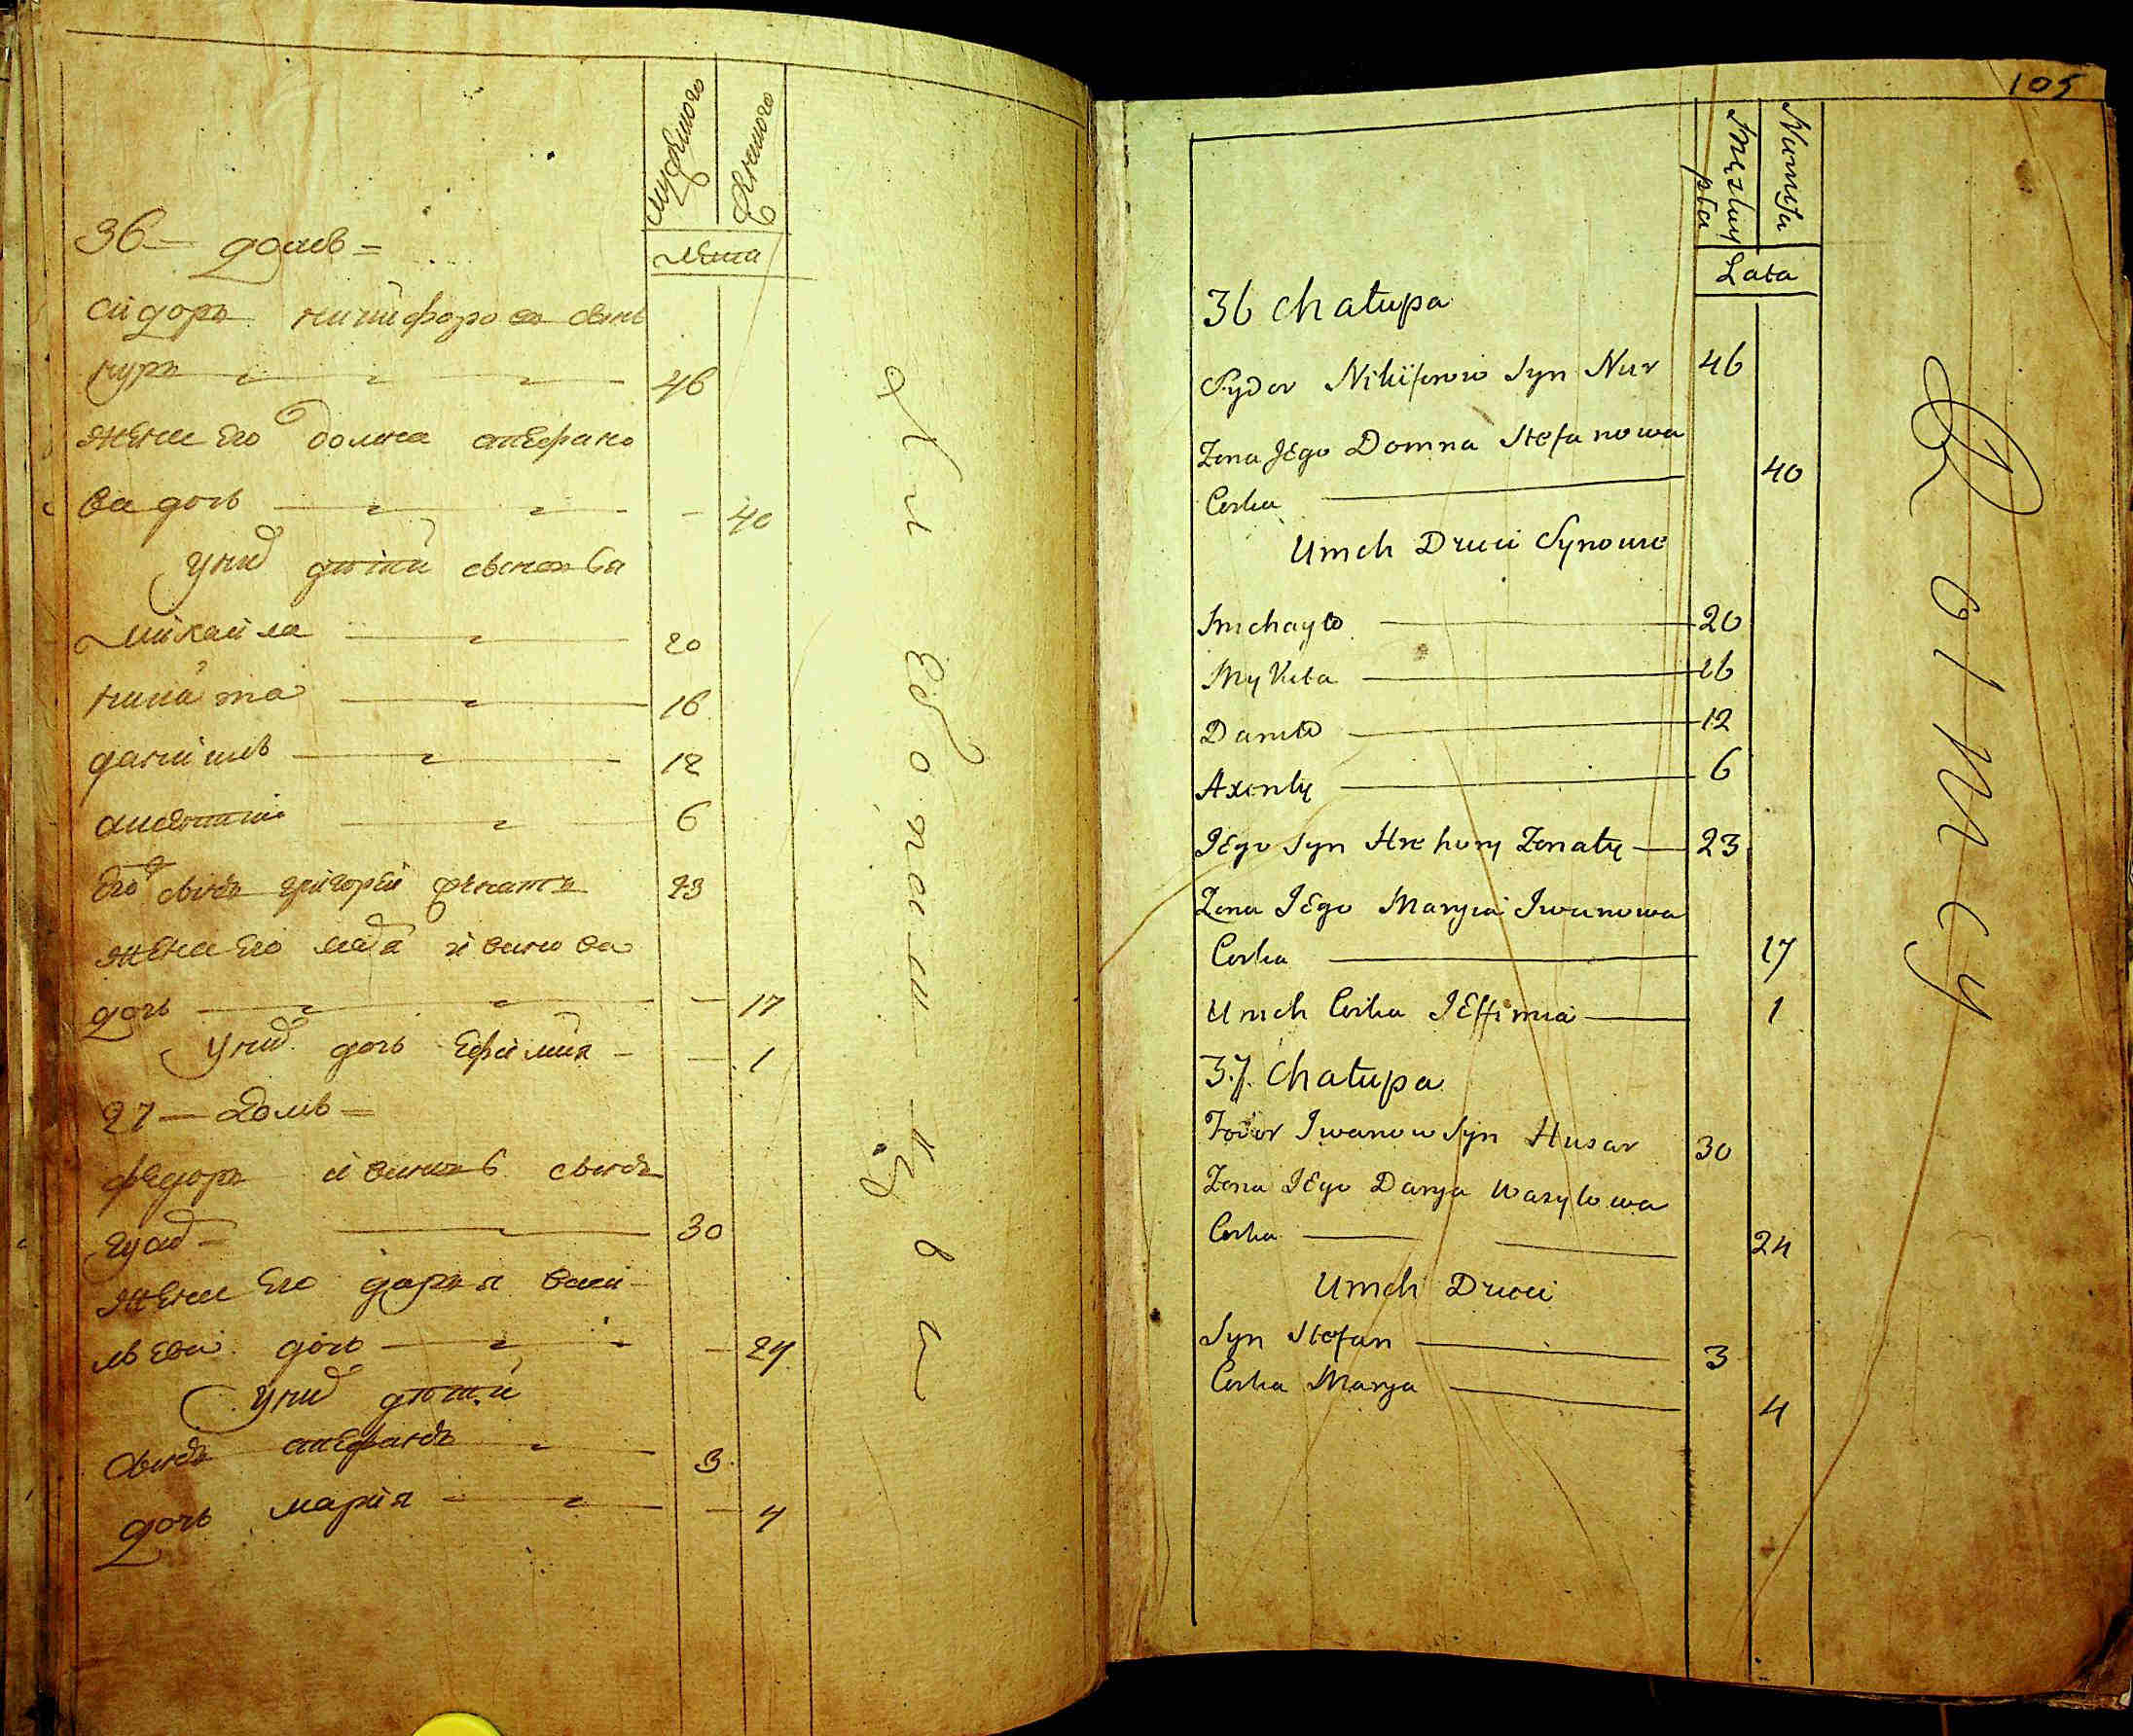 мужеского
женского
лета
36 — домъ =
Сидоръ никифоровъ сынъ
нуръ 46
жена его домна стефано
ва дочь — 40
у них дѣти сыновья
михаила 20
никита 16
данило 12
6
его сынъ григорей женатъ 23
жена его иванова
дочь — 17
у них дочь Ефимия — — 1
37 — домъ =
федоръ ивановъ сынъ
30
жена его дарья васи
льева дочь — 24
у них дѣти
сынъ стефанъ 3
дочь мария — 4
105
Męzkay
płea
Lata
36 chałupa
Sydor Nikiforow Syn Nur 46
Zona JEgo Domna Stefanowa
Corka 40
Umch Dzieci Synowie
Michayło 20
Mykita 16
Daniło 12
Axenty 6
JEgo Syn Hrehory Zonaty 23
Zona JEgo Maryia Iwanowa
Corka 17
Unich Corka JEffimia 1
37. chałupa
Fodor Iwanow Syn Husar 30
Zona JEgo Darya Wasylowa
Corka 24
Umch Dzieci
Syn Stefan 3
Corka Marya 4
Rolnicy